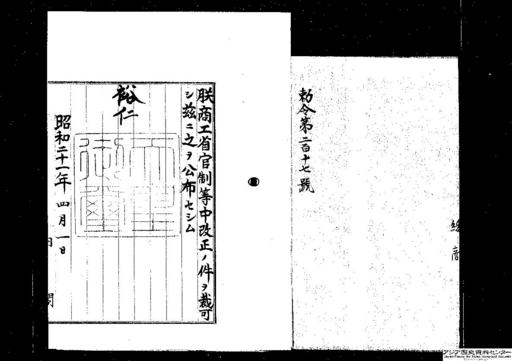 勅令第二百十七號
朕商工省官制等中改正ノ件ヲ裁可
シ茲ニ之ヲ公布セシム
裕仁
天皇御璽
昭和二十一年四月一日
アジア歴史資料センター